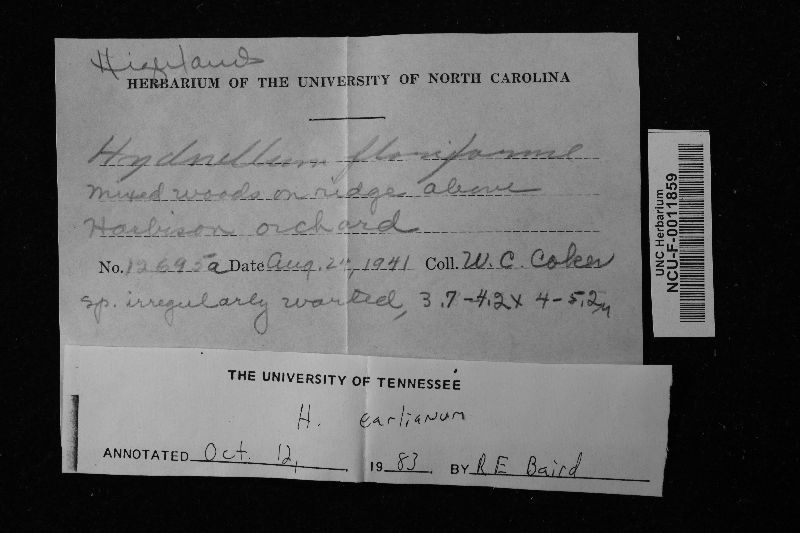 Highlands
HERBARIUM OF THE UNIVERSITY OF NORTH CAROLINA
Hydnellum floriforme
Mixed woods on ridge above
Harbison orchard
No. 12695a Date Aug. 24, 1941 Coll. W. C. Coker
sp. irregularly warted, 3.7-4.2 x 4-5.2µ
UNC Herbarium
NCU-F-0011859
THE UNIVERSITY OF TENNESSEE
H. earlianum
ANNOTATED Oct. 12, 1983. BY R E Baird